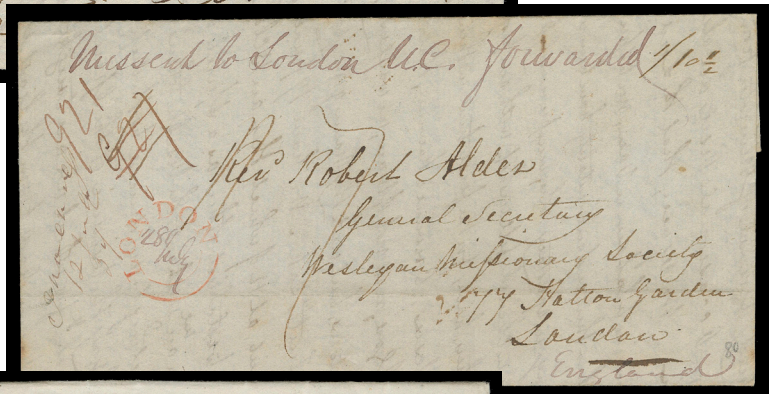 Missent to London U.C. forwarded 1/10 1/2
921
Revd Robert Alder
General Secretary
Wesleyan Missionary Society
77 Hatton Garden
London
England
LONDON
80